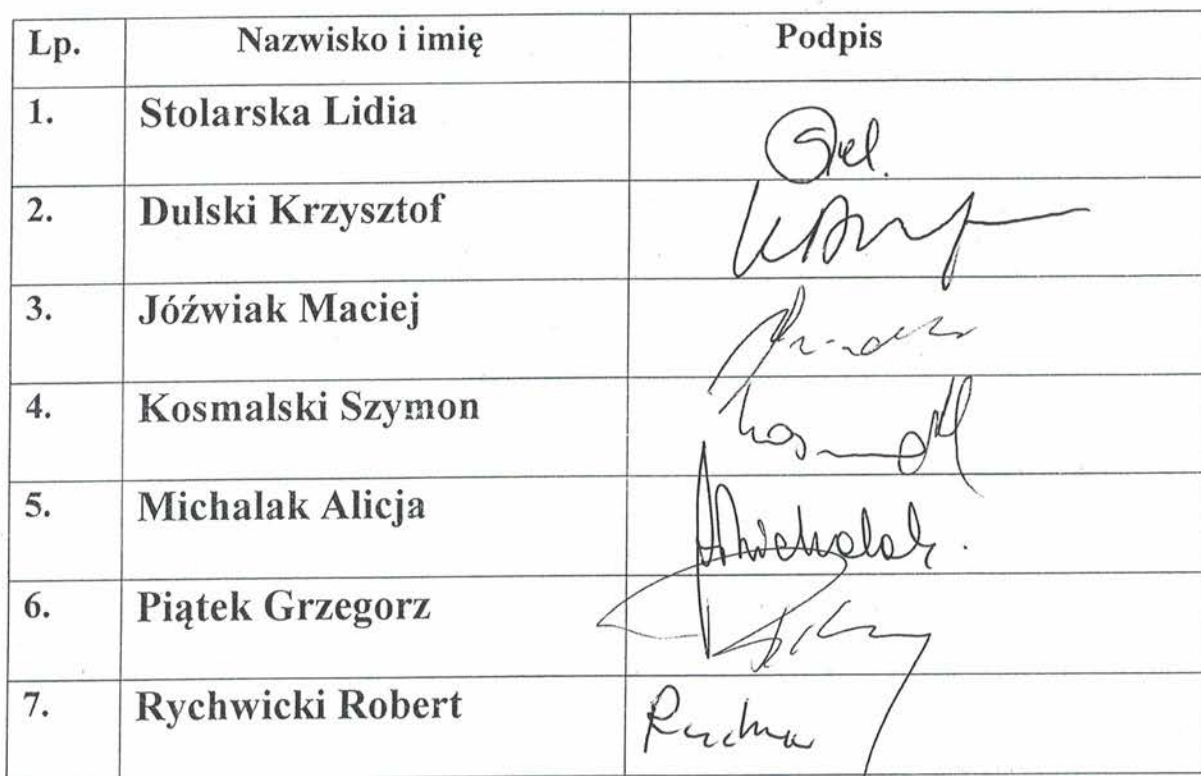 Lp. Nazwisko i imię Podpis
1. Stolarska Lidia
2. Dulski Krzysztof
3. Jóźwiak Maciej
4. Kosmalski Szymon
5. Michalak Alicja AMichalak.
6. Piątek Grzegorz
7. Rychwicki Robert